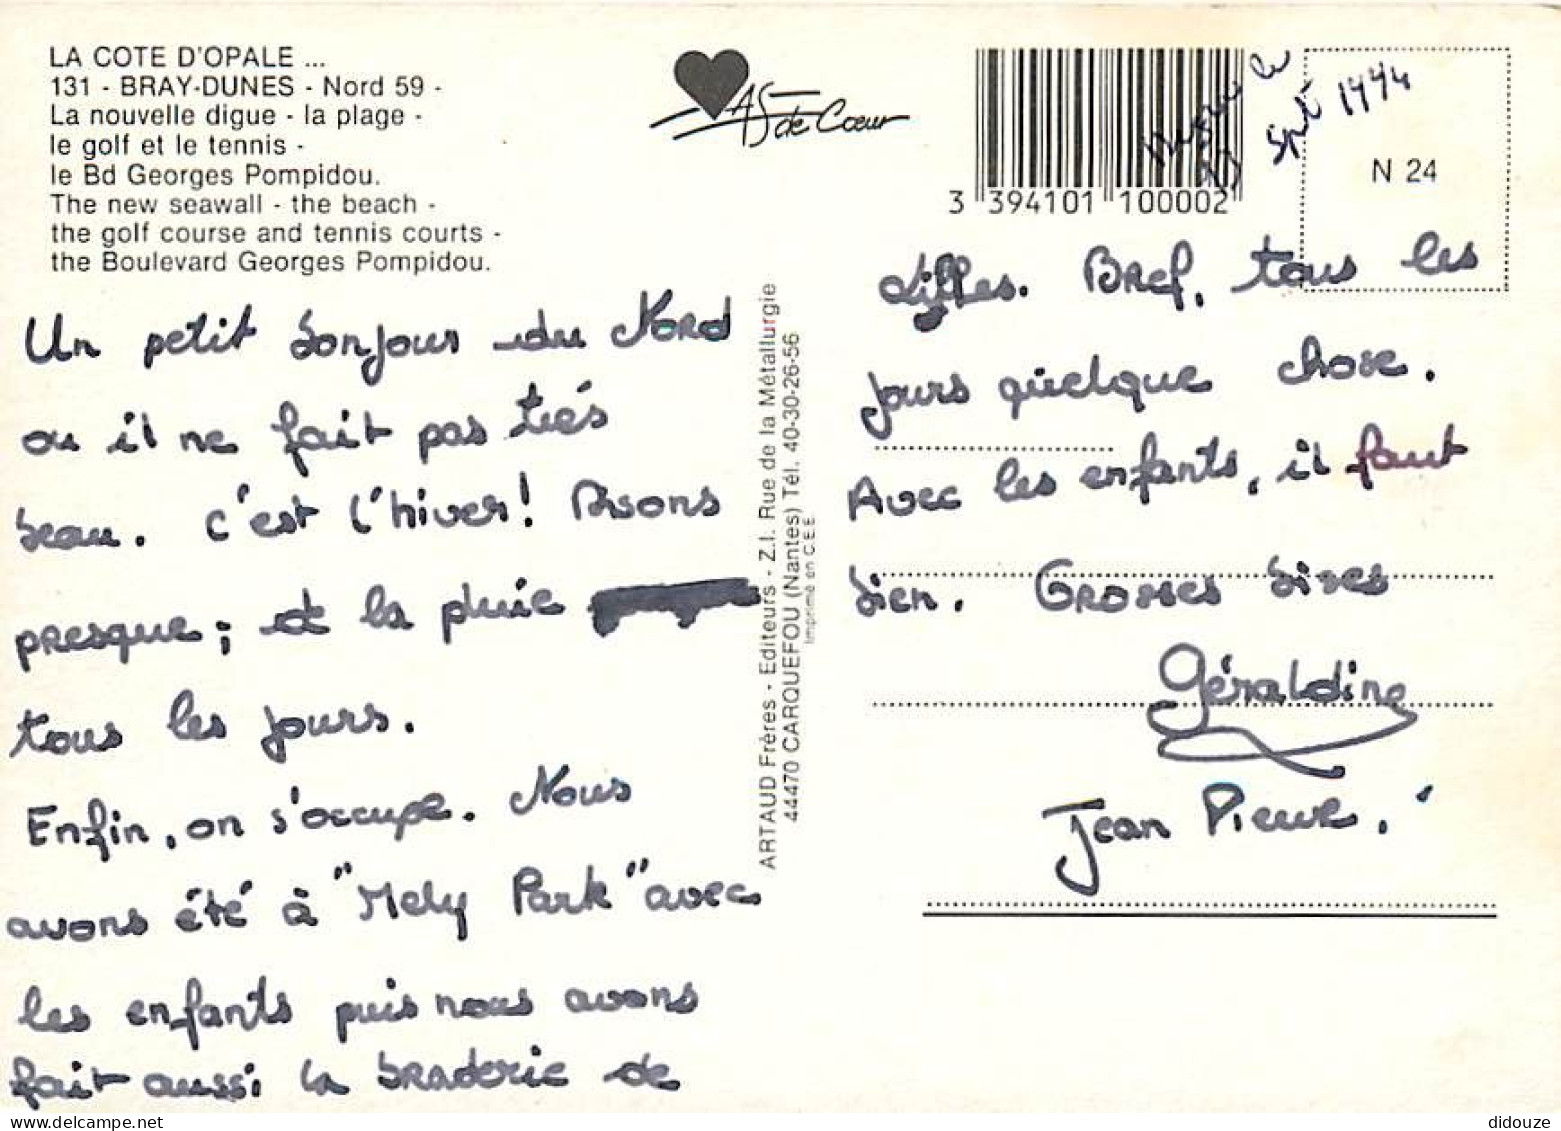 LA COTE D'OPALE ...
131 - BRAY-DUNES - Nord 59 -
La nouvelle digue - la plage -
le golf et le tennis -
le Bd Georges Pompidou.
The new seawall - the beach -
the golf course and tennis courts -
the Boulevard Georges Pompidou.
AS de Cœur
3 394101 100002
le
Sept 1994
N 24
Un petit bonjour du Nord
ou il ne fait pas très
beau. C'est l'hiver! Disons
presque ; et la pluie
tous les jours.
Enfin, on s'occupe. Nous
avons été à "Mely Park" avec
les enfants puis nous avons
fait aussi la braderie de
ARTAUD Frères - Editeurs - Z.I. Rue de la Métallurgie
44470 CARQUEFOU (Nantes) Tél. 40-30-26-56
Imprimé en C.E.E.
Lilles. Bref, tous les
jours quelque chose.
Avec les enfants, il faut
bien. Grosses bises
Géraldine
Jean Pierre.
didouze